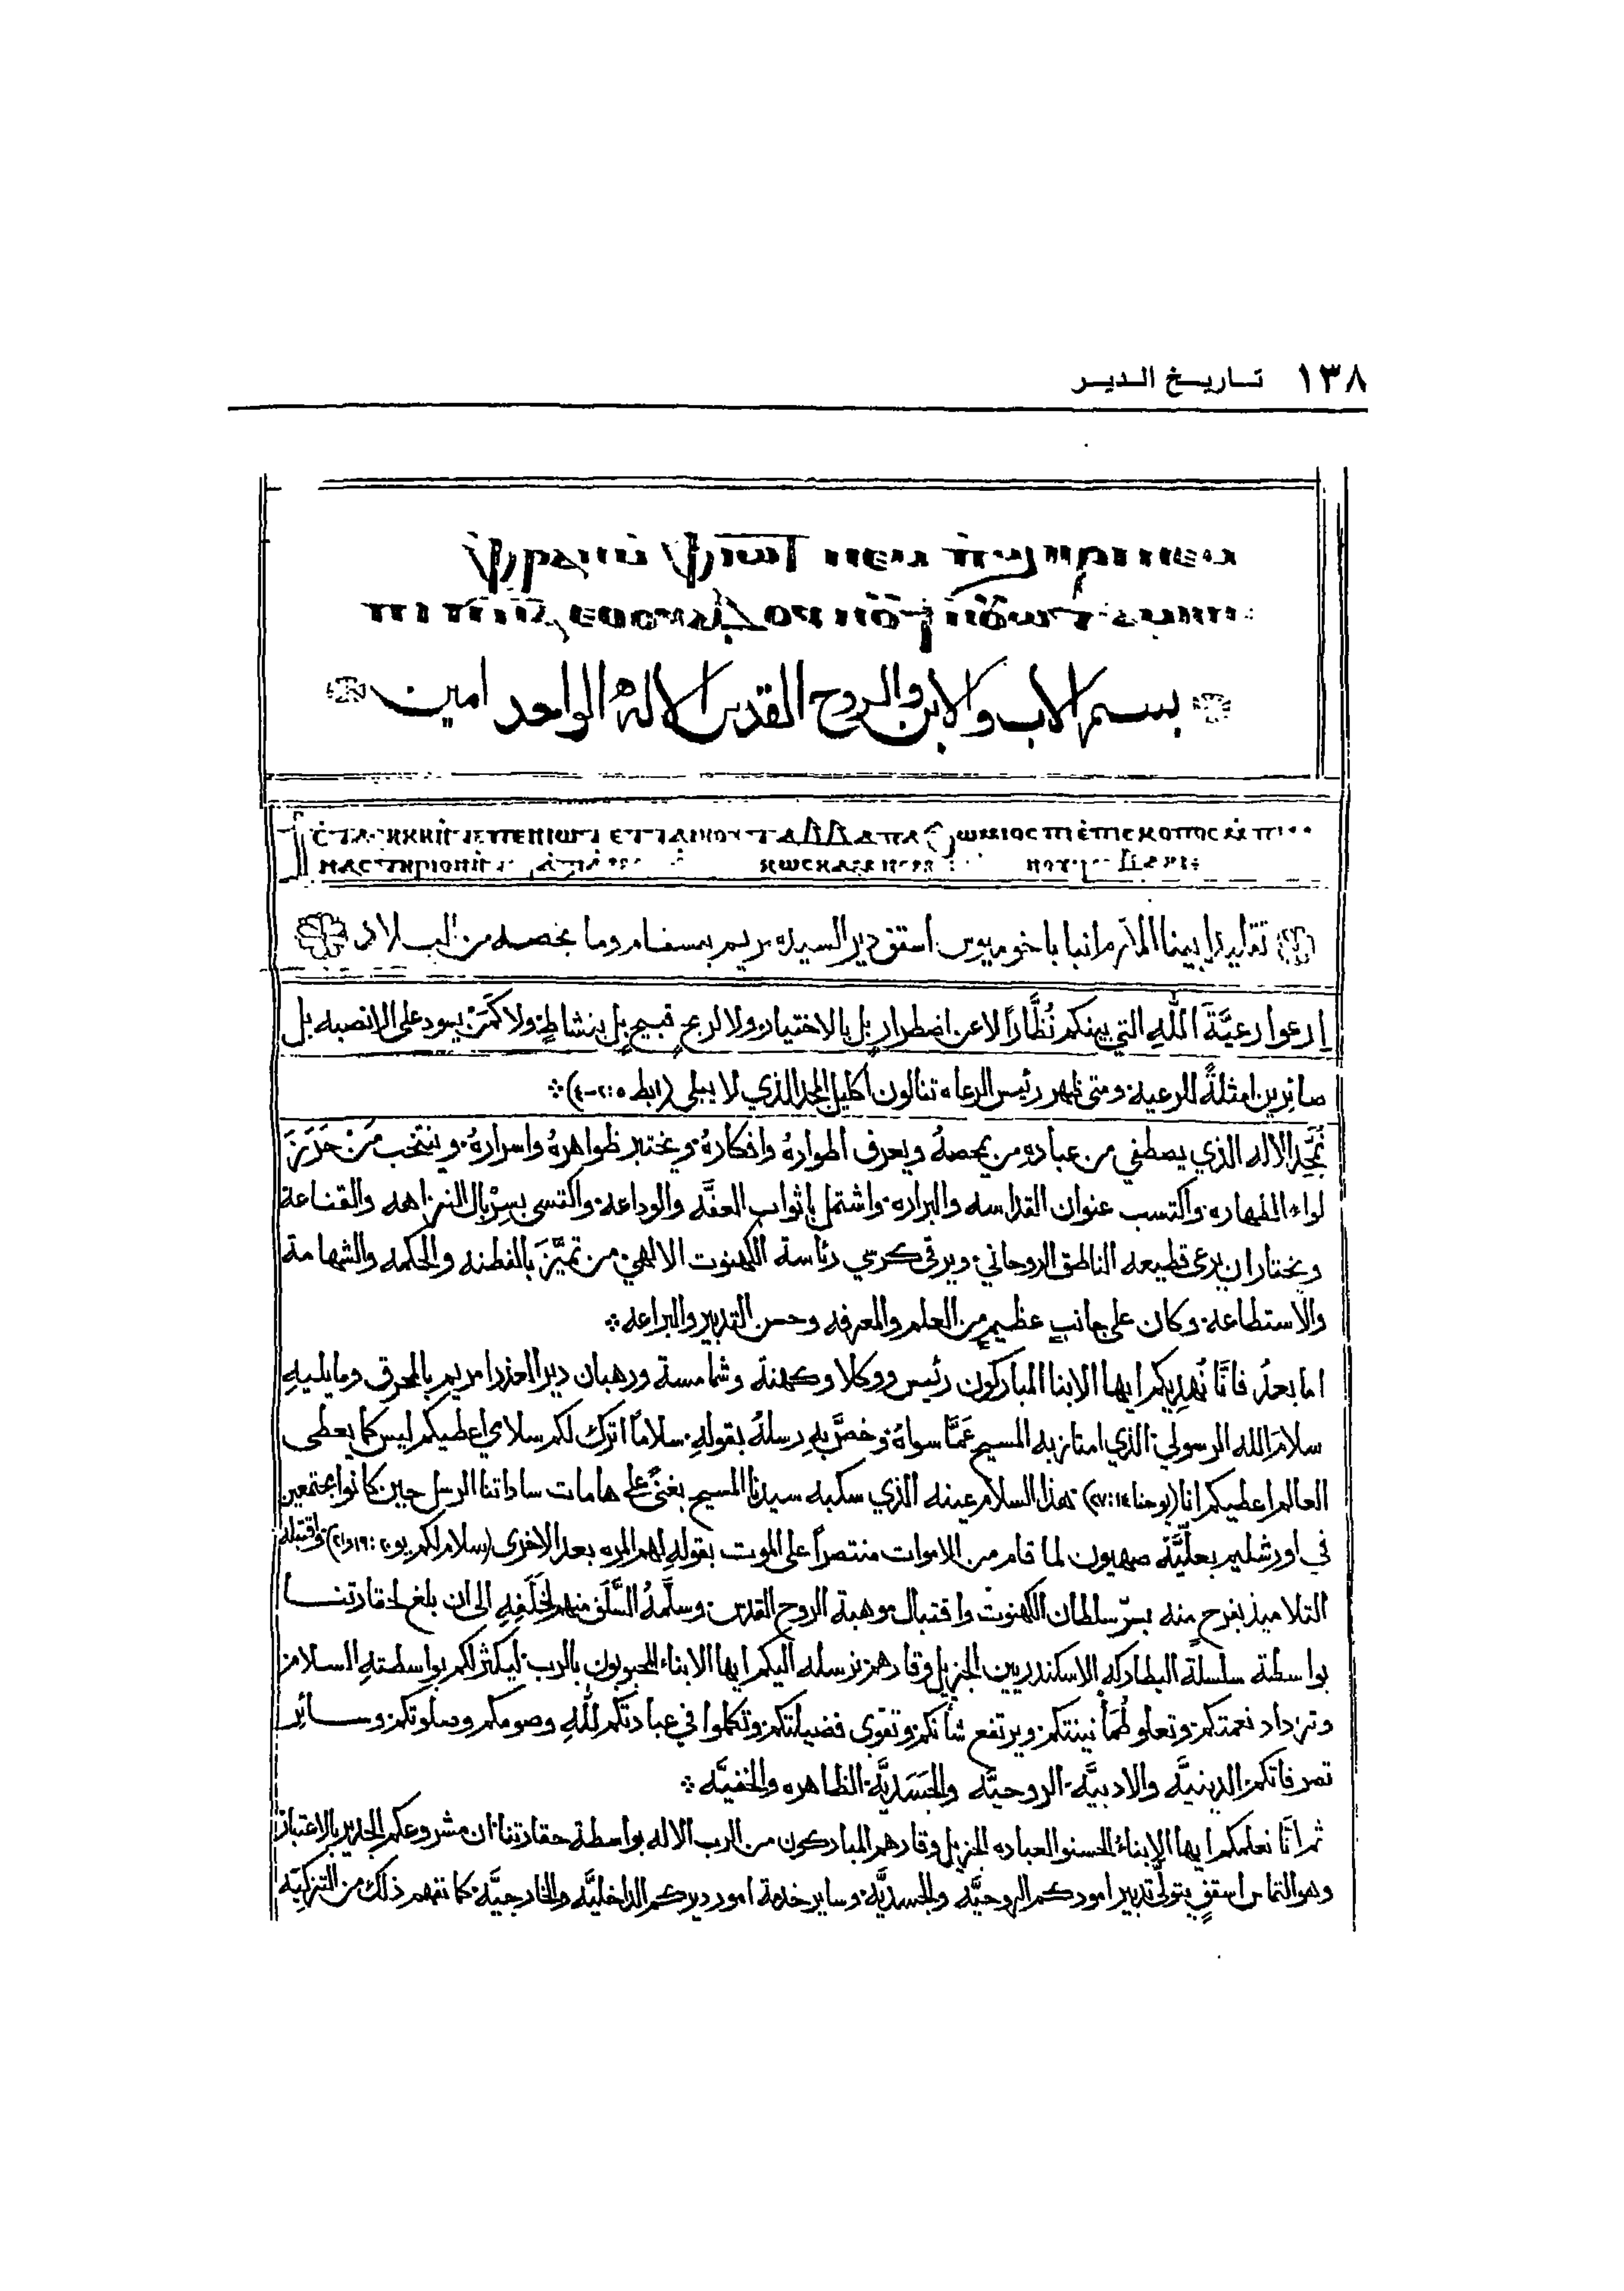 ١٣٨ تاريخ الدير
ⲫⲣⲁⲛ ⲙ̀ⲫⲓⲱⲧ ⲛⲉⲙ ⲡ̀ϣⲏⲣⲓ ⲛⲉⲙ
ⲡⲓⲡ̅ⲛ̅ⲁ̅ ⲉⲑⲟⲩⲁⲃ ⲟⲩⲛⲟⲩϯ ⲛ̀ⲟⲩⲱⲧ ⲁⲙⲏⲛ
بسم الاب والابن والروح القدس الاله الواحد امين
ⲙ̀ⲡⲉⲛⲓⲱⲧ ⲉⲧⲧⲁⲓⲏⲟⲩⲧ ⲁⲃⲃⲁ ⲡⲁϧⲱⲙⲓⲟⲥ ⲡⲓⲉ̀ⲡⲓⲥⲕⲟⲡⲟⲥ
تقليد ابينا المكرم انبا باخوميوس اسقف دير السيده مريم بمسفام وما يخصه من البلاد
ارعوا رعيَّةَ اللهِ التي بينكم نُظَّارًا لا عن اضطرار بل بالاختيار ولا لربح قبيح بل بنشاطٍ ولا كمَنْ يسود على الانصبه بل
صائرين امثلةً للرعيه ومتى ظهر رئيس الرعاه تنالون اكليل المجد الذي لا يبلى (١بط ٥: ٢-٤)
نُمَجِّد الاله الذي يصطفي من عباده من يمحصهُ ويعرف اطوارهُ وافكارهُ ويختبر ظواهرهُ واسرارهُ وينتخب مَنْ حَرَزَ
لواء الطهاره واكتسب عنوان القداسه والبراره واشتمل باثواب العفَّه والوداعه واكتسى بسِرْبال النزاهه والقناعة
ويختار ان يرعى قطيعه الناطق الروحاني ويرقى كرسي رئاسة الكهنوت الالهي من تميَّزَ بالفطنه والحكمه والشهامة
والاستطاعه وكان على جانبٍ عظيمٍ من العلم والمعرفه وحسن التدبير والبراعه
اما بعدُ فانَّا نُهديكم ايها الابنا المباركون رئيس ووكلا وكهنة وشمامسة ورهبان دير العذرا مريم بالمحرق وما يليهِ
سلامَ الله الرسولي الذي امتاز به المسيح عمَّا سواهُ وخصَّ بهِ رسلهُ بقولهِ سلامًا اترك لكم سلامي اعطيكم ليس كما يعطي
العالم اعطيكم انا (يوحنا ١٤: ٢٧) هذا السلام عينه الذي سكبه سيدنا المسيح بغنىً على هامات ساداتنا الرسل حين كانوا مجتمعين
في اورشليم بعلّيَّة صهيون لما قام من الاموات منتصرًا على الموت بقولهِ لهم المره بعد الاخرى (سلام لكم يو ٢٠: ١٩ و٢١) واقتبله
التلاميذ بفرح منه بسرّ سلطان الكهنوت واقتبال موهبة الروح القدس وسلَّمهُ السَّلَف منهم لخَلَفِهِ الى ان بلغ لحقارتنا
بواسطة سلسلة البطاركه الاسكندريين الجزيل وقارهم نرسله اليكم ايها الابناء المحبوبون بالرب ليكثر لكم بواسطتهِ السلام
وتزداد نعمتكم وتعلو طُمَأْنينتكم ويرتفع شأنكم وتقوى فضيلتكم وتكملوا في عبادتكم للهِ وصومكم وصلوتكم وسائِر
تصرفاتكم الدينيَّه والادبيَّه الروحيَّه والجَسَديَّه الظاهره والخفيَّه
ثم انَّا نعلمكم ايها الابناء الحسنو العباده الجزيل وقارهم المباركون من الرب الاله بواسطة حقارتنا ان مشروعكم الجدير بالاعتبار
وهو التماس اسقفٍ يتولَّى تدبير اموركم الروحيَّه والجسديَّه وساير خدمة امور ديركم الداخليَّه والخارجيَّه كما نفهم ذلك من التزكيَه